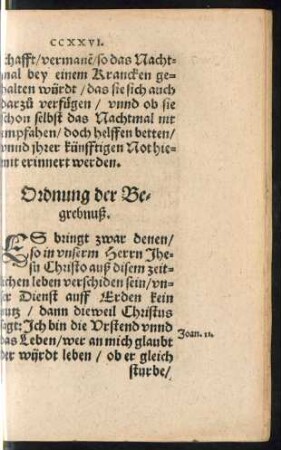 CCXXVI.
schafft/vermanē/so das Nacht-
mal bey einem Krancken ge-
halten würdt / das sie sich auch
darzů verfügen / vnnd ob sie
schon selbst das Nachtmal nit
empfahen/ doch helffen betten/
vnnd jhrer künfftigen Not hie-
mit erinnert werden.
Ordnung der Be-
grebnuß.
ES bringt zwar denen/
so in vnserm Herrn Jhe-
su Christo auß disem zeit-
lichen leben verschiden sein/ vn-
ser Dienst auff Erden kein
nutz / dann dieweil Christus
sagt: Ich bin die Vrstend vnnd
das Leben/wer an mich glaubt
der würdt leben / ob er gleich
Joan. 11.
sturbe/